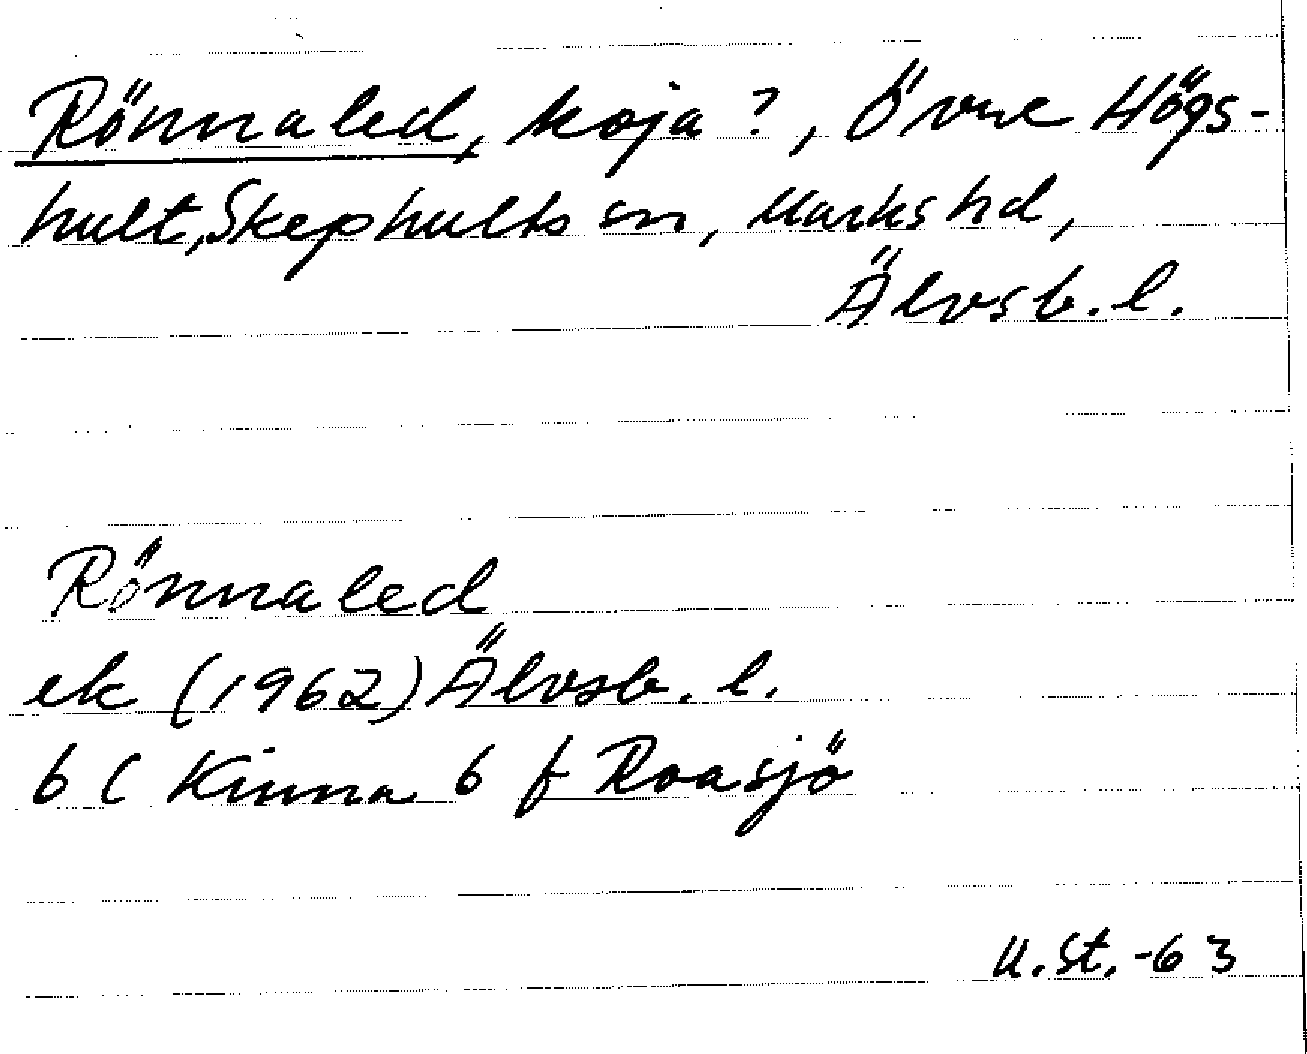 Rönnaled, koja?, Övre Högs-
hult, Skephults sn, Marks hd,
Älvsb. l.
Rönnaled
ek (1962) Älvsb. l.
6 C Kinna 6 f Roasjö
U.St.-63